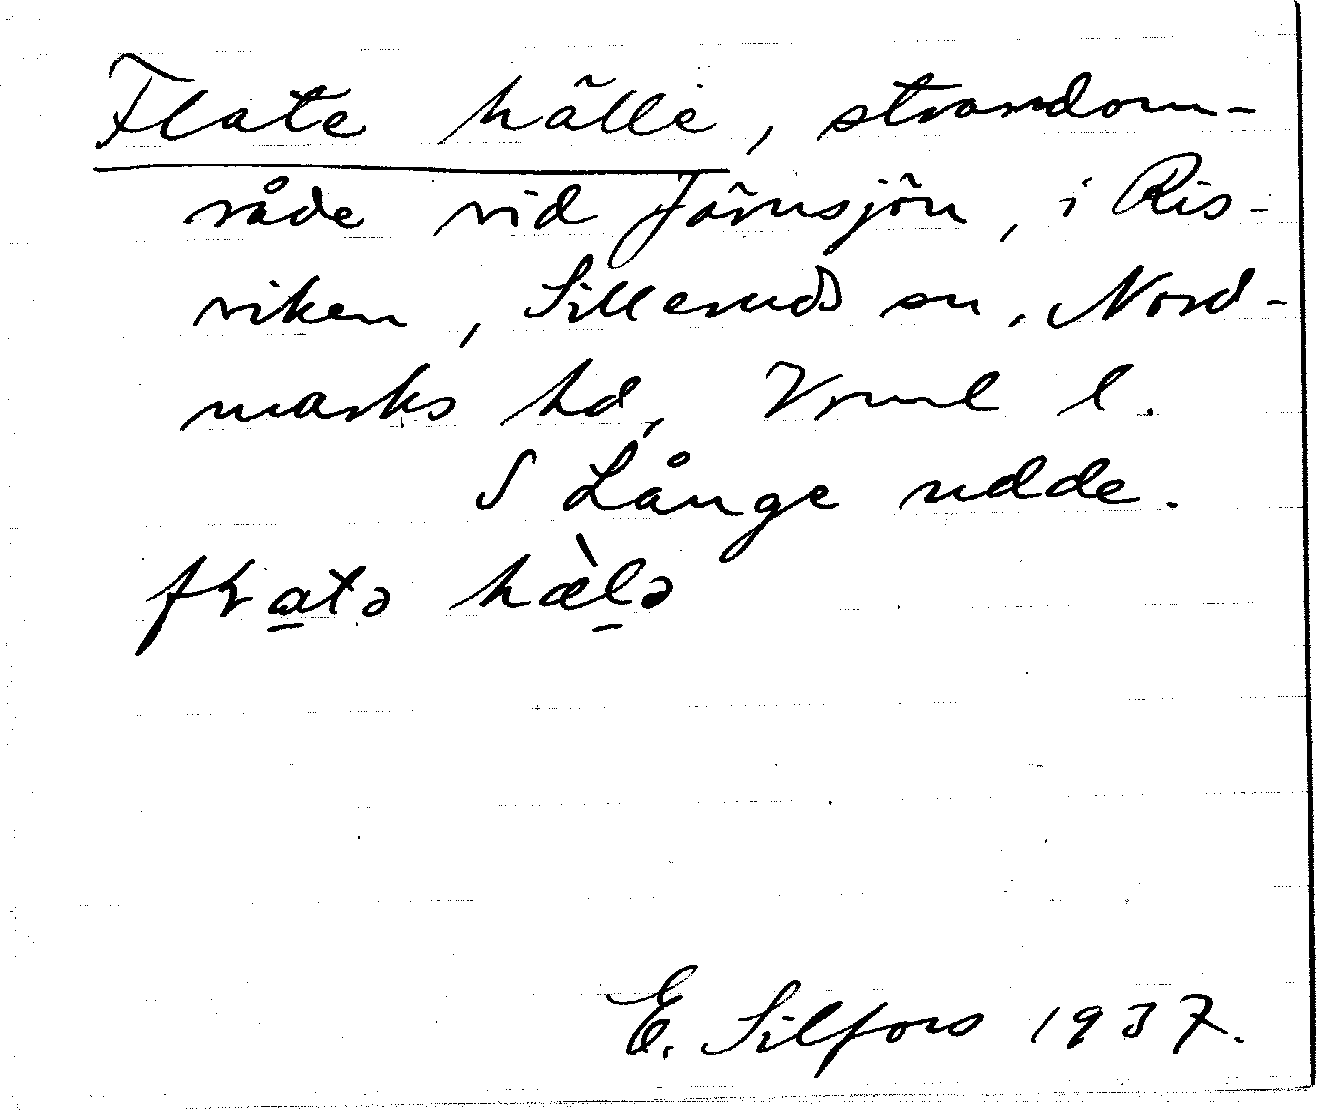 Flate hälle, strandom-
råde vid Järnsjön, i Ris-
viken, Silleruds sn, Nord-
marks hd, Vrml l.
S Långe udde.
hæ̀l̠ə
E. Silfors 1937.